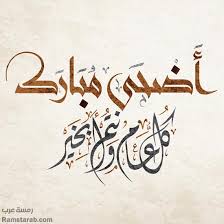 أضحى مبارك
كل عام وأنتم بخير
رمسة عرب
Ramstarab.com